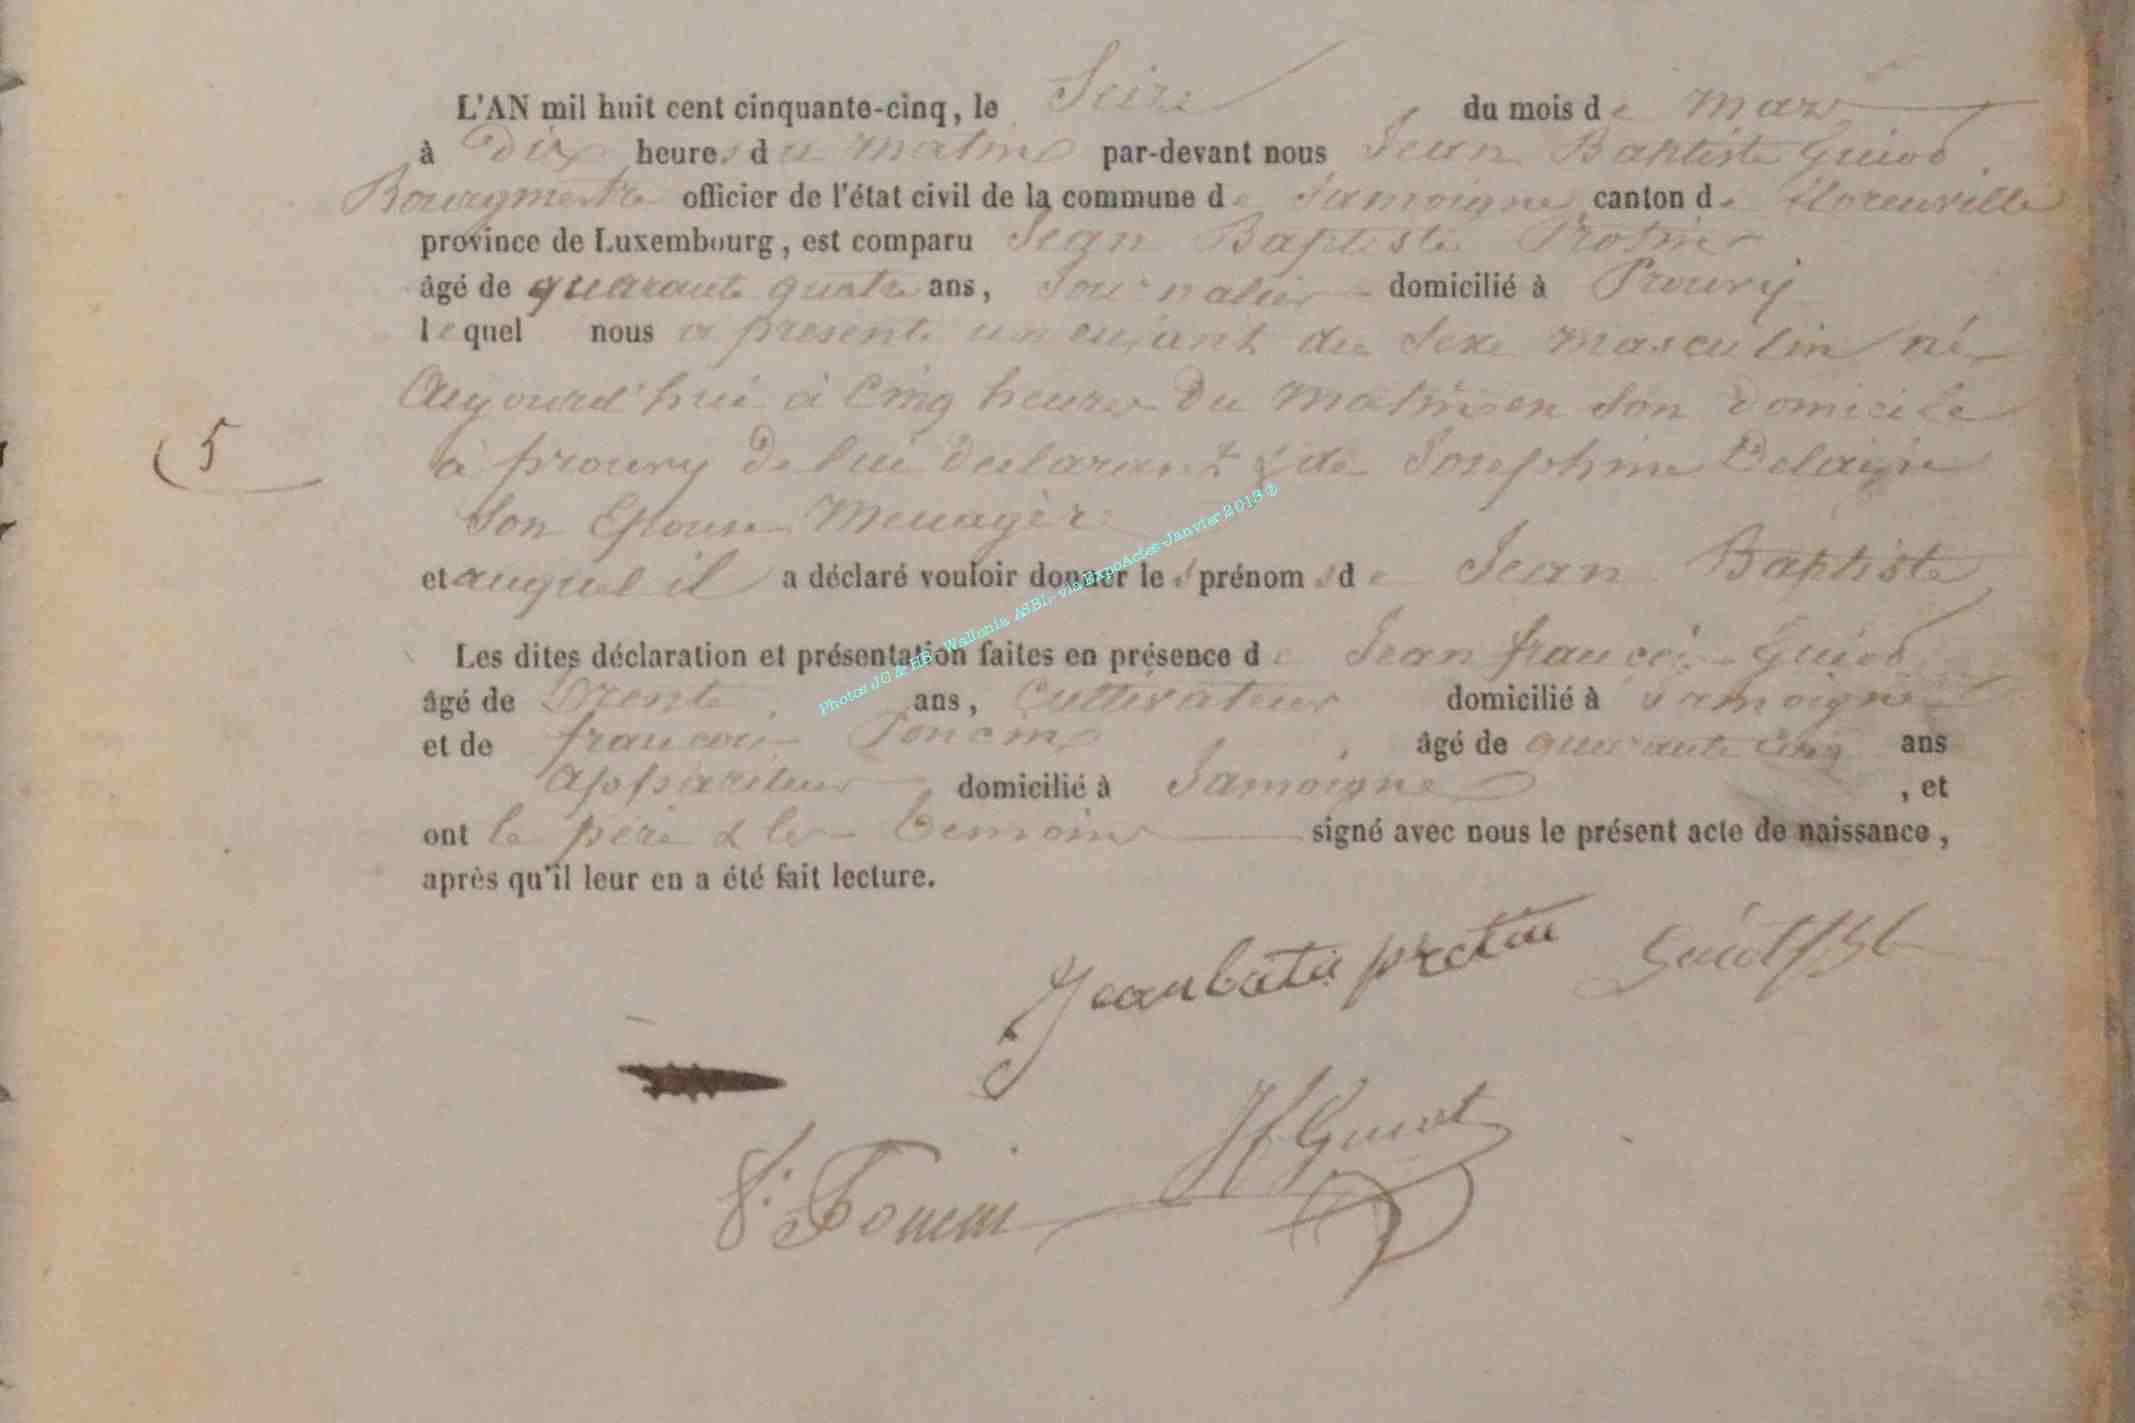 L'AN mil huit cent cinquante-cinq, le Seize du mois de mars
à Dix heures du matin par-devant nous Jean Baptiste Guiod
Bourgmestre officier de l'état civil de la commune de Jamoigne canton de florenville
province de Luxembourg, est comparu Jean Baptiste
âgé de quarante quatre ans, Journalier domicilié à Prouvy
lequel nous a presenté un enfant du Sexe masculin né
Aujourd'hui à Cinq heures du matin en son domicile
5
à prouvy de lui declarant & de Josephine
son Epouse Menagère
et auquel il a déclaré vouloir donner les prénoms de Jean Baptiste
Les dites déclaration et présentation faites en présence de Jean françois Guiod
âgé de Trente ans, Cultivateur domicilié à Jamoigne
et de françois Poncin âgé de quarante Cinq ans
appariteur domicilié à Jamoigne , et
ont le père & les temoins signé avec nous le présent acte de naissance,
après qu'il leur en a été fait lecture.
Photos JG & HB - Wallonia ASBL - via ExpoActes - Janvier 2013 ®